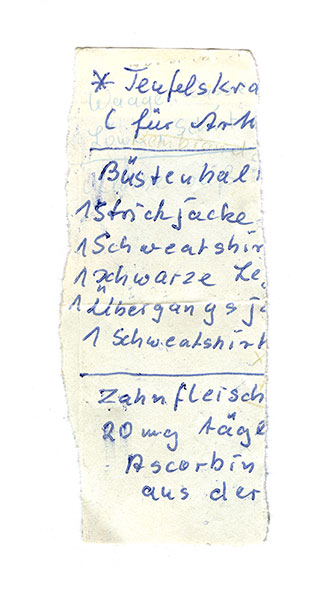 * Teufelskra
( für Arth
Büstenhal
1 Strickjacke
1 Schweatshir
1 schwarze Le
1 Übergangsja
1 Schweatshirt
Zahnfleisch
20 mg täge
Ascorbin
aus der